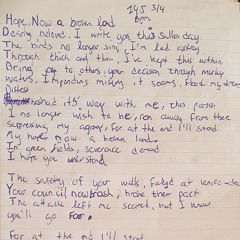 145 3/4
bpm.
Hope, Now a brown land
Dearly beloved, I write you this sullen day
The birds no longer sing, I'm led astray
Through thick and thin, I've kept this within
Bring joy to others, your decision enough
waters, impending misery it seems, flood my dreams
Distress
had it's way with me, this poison
I no longer wish to be, run away from thee
suppressing my agony, for at the end I'll stand
My hope now a brown land
In open fields, severance demand
I hope you understand
The safety of your walls, fades at
Your council now trash, broke their pact
The attack left me scarred, but I know
you'll go far.
For at the end I'll stand